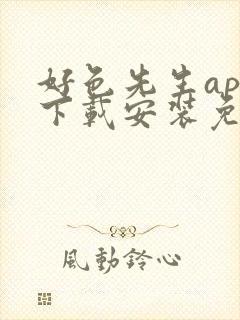 好色先生ap
下载安装免
風動鈴心